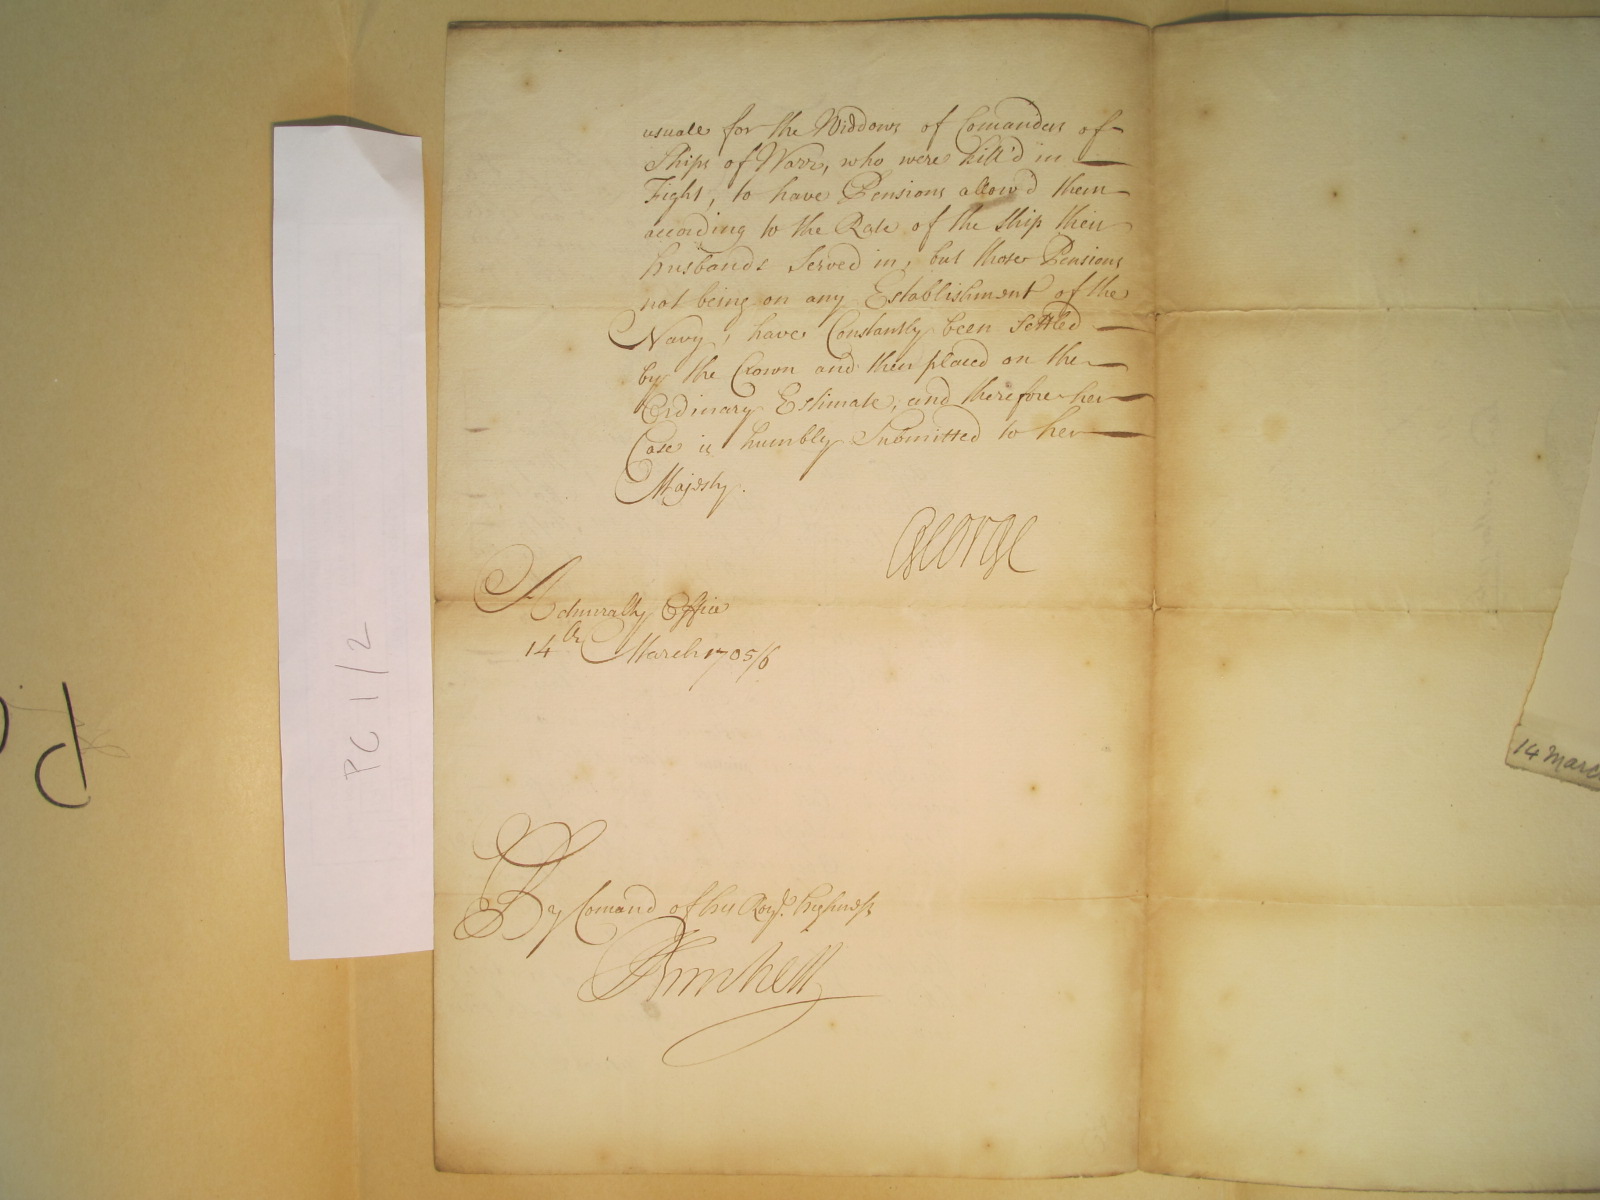 usuale for the Widdows of Comanders of
Ships of Warr, who were kill'd in
Fight, to have Pensions allow'd them
according to the Rate of the Ship their
husbands Served in, but those Pensions
not being on any Establishment of the
Navy, have Constantly been Settled
by the Crown and then placed on the
Ordinary Estimate, and therefore her
Case is humbly Submitted to her
Majesty.
George
Admiralty Office
14th March 1705/6
By Comand of his Roy.l highness
PC 1/2
14 Marc